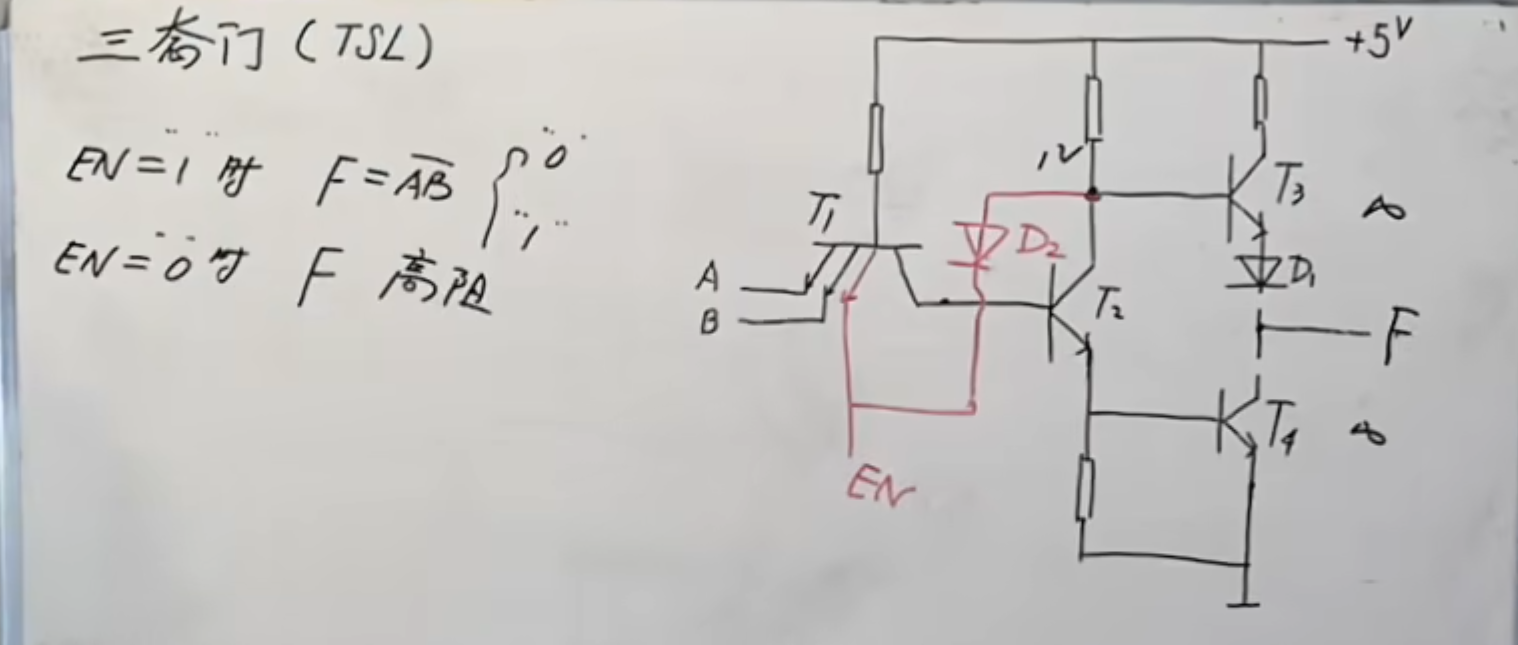 三态门(TSL)
EN="1"时 F=\overline{AB} { "0"
"1"
EN="0"时 F 高阻
+5V
1V
T3 ∞
T1
D2
D1
A
B
T2
F
T4 ∞
EN